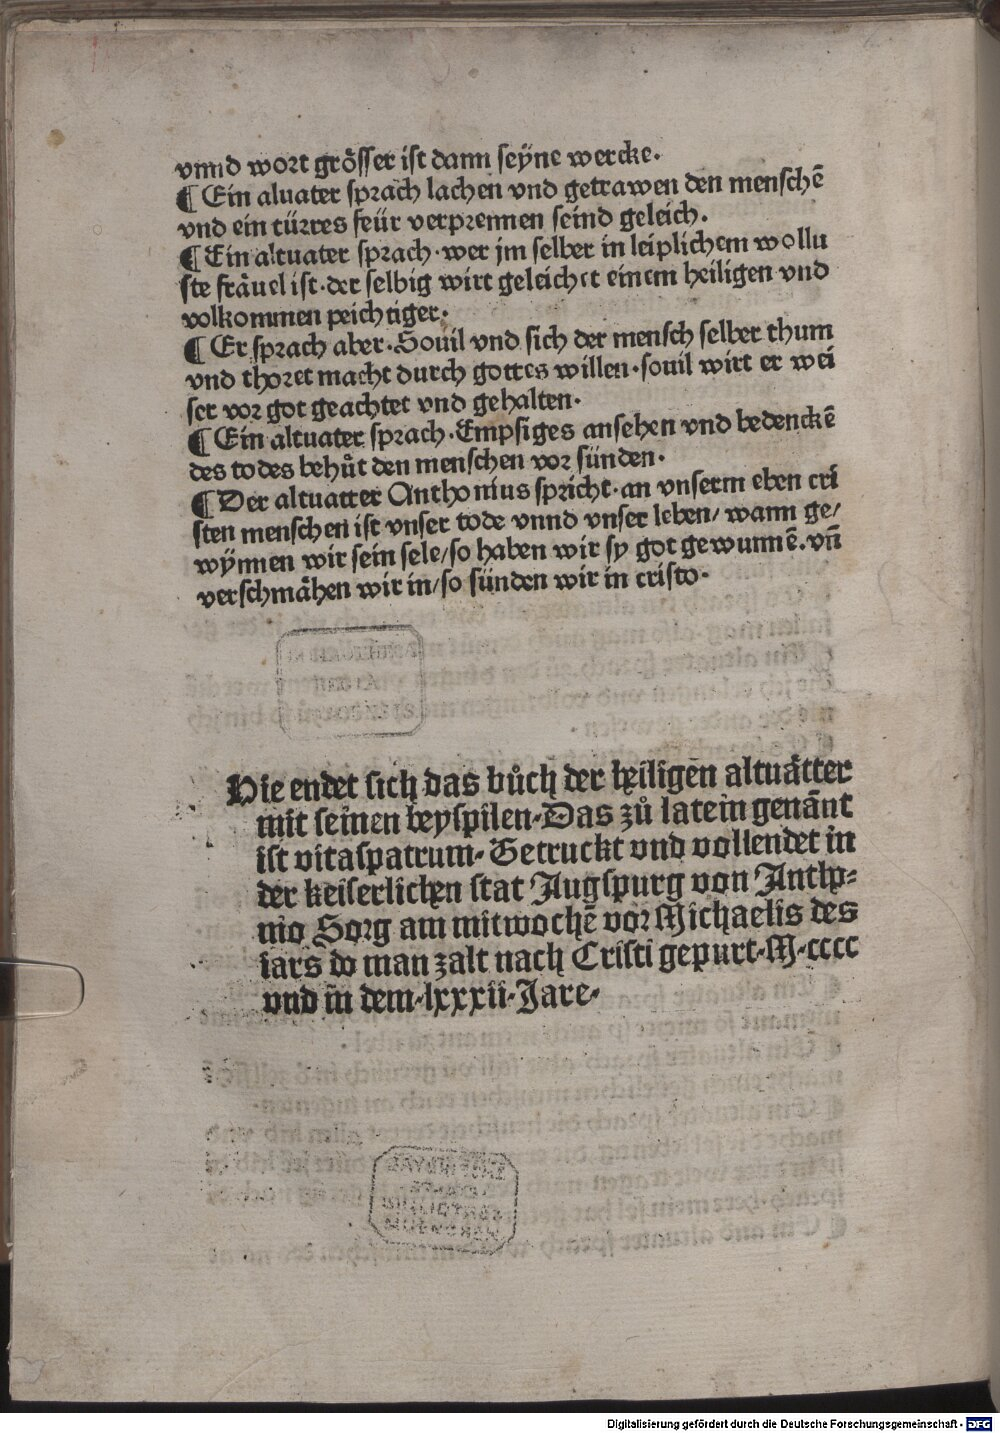 vnnd wort grösser ist dann seyne wercke.
¶ Ein aluater sprach lachen vnd getrawen den menschē
vnd ein türres feür verprennen seind geleich.
¶ Ein altuater sprach· wer jm selber in leiplichem wollu
ste frävel ist· der selbig wirt geleichet einem heiligen vnd
volkommen peichtiger.
¶ Er sprach aber· Souil vnd sich der mensch selber thum
vnd thoret macht durch gottes willen· souil wirt er wei
ser vor got geachtet vnd gehalten·
¶ Ein altuater sprach· Empsiges ansehen vnd bedenckē
des todes behůt den menschen vor sünden·
¶ Der altuatter Anthonius spricht· an vnserm eben cri
sten menschen ist vnser tode vnnd vnser leben/ wann ge/
wÿnnen wir sein sele/ so haben wir sy got gewunnē. vñ
verschmähen wir in/ so sünden wir in cristo·
Hie endet sich das bůch der heiligen altuätter
mit seinen beyspilen· Das zů latein genānt
ist vitaspatrum· Getruckt vnd vollendet in
der keiserlichen stat Augspurg von Antho=
nio Sorg am mitwochē vor Michaelis des
iars do man zalt nach Cristi gepurt· M·cccc
vnd in dem·lxxxii·Jare·
Digitalisierung gefördert durch die Deutsche Forschungsgemeinschaft - DFG